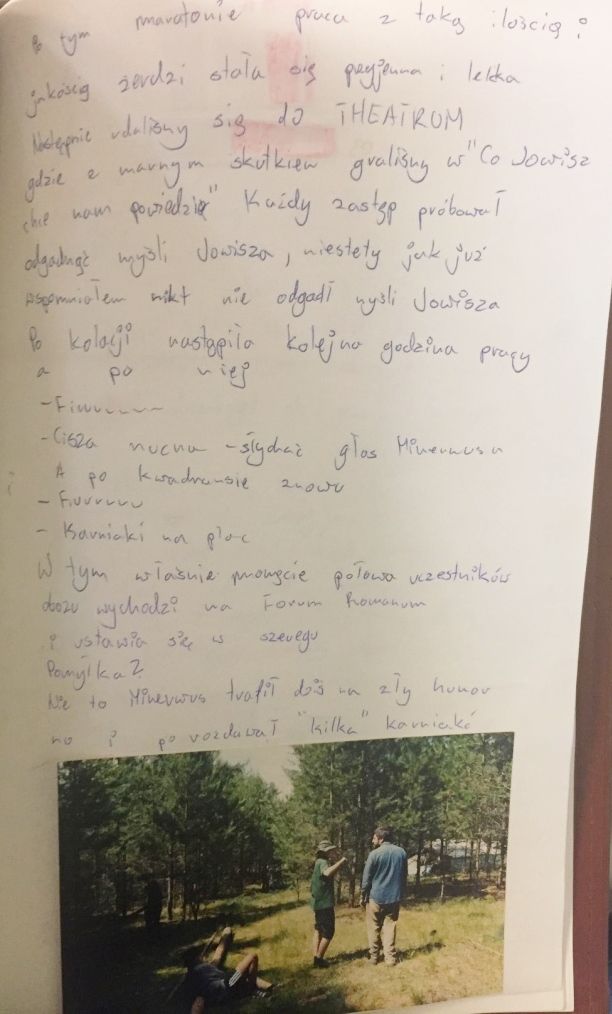 Po tym maratonie praca z taką ilością i
jakością żerdzi stała się przyjemna i lekka
Następnie udaliśmy się do THEATRUM
gdzie z marnym skutkiem graliśmy w "Co Jowisz
chce nam powiedzieć" Każdy zastęp próbował
odgadnąć myśli Jowisza, niestety jak już
wspomniałem nikt nie odgadł myśli Jowisza
Po kolacji nastąpiła kolejna godzina pracy
a po niej
- Fiuuuuuu
- Cisza nocna - słychać głos Minerwusa
A po kwadransie znowu
- Fiuuuuuu
- Karniaki na plac
W tym właśnie momęcie połowa uczestników
obozu wychodzi na Forum Romanum
i ustawia się w szeregu
Pomyłka?
Nie to Minerwus trafił dziś na zły humor
no i porozdawał "kilka" karniaków